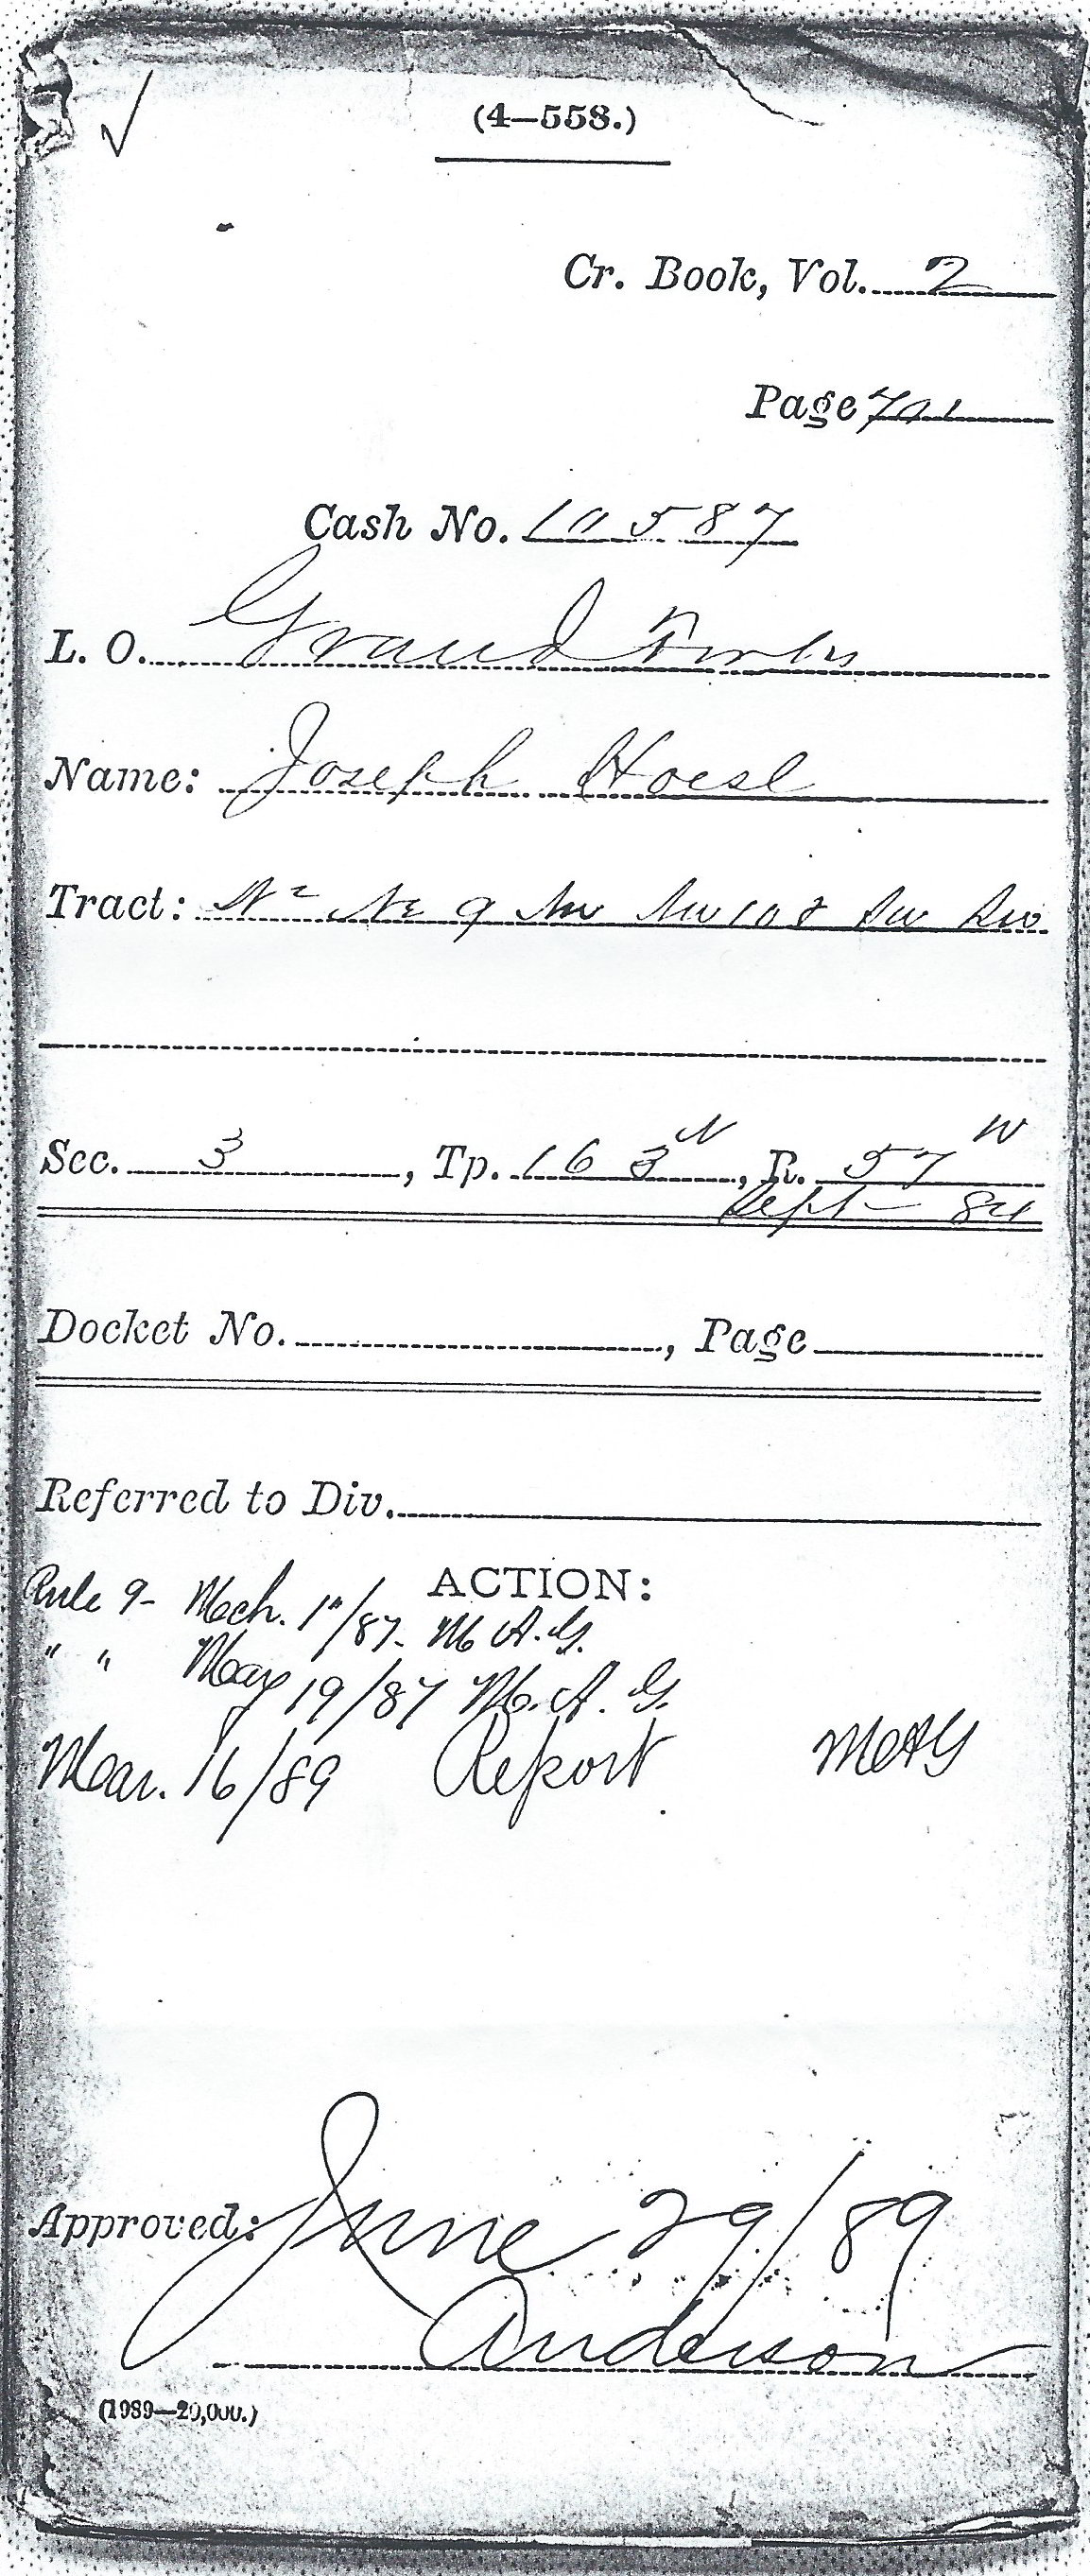 (4—558.)
Cr. Book, Vol. 2
Page 701
Cash No. 10587
L. O. Grand Forks
Name: Joseph Hoesl
Tract: N² Ne 9 Nw Nw 10 & Sw Sw
Sec. 3, Tp. 163 N, R. 57 W
Sept - 84
Docket No. , Page
Referred to Div.
ACTION:
Rule 9 - Mch. 1"/87- M A. G.
" " May 19/87 M. A. G.
Mar. 16/89 Report MAG
Approved: June 29/89
Anderson
(1989—20,000.)